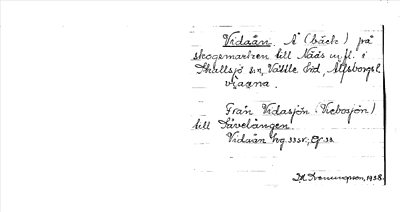 Vidaån. Å (bäck) på
skogsmarken till Nääs m.fl. i
Skallsjö sn, Vättle hd, Älvsborgs l.
Från Vidasjön (Viebosjön)
till Sävelången.
Vidaån hg.
1938.